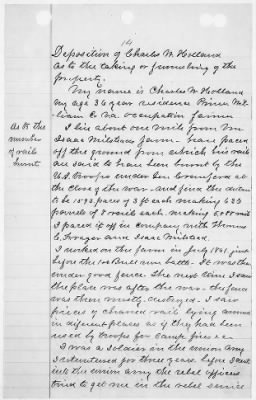 (4)
Deposition of Charles W. Holland
as to the taking or furnishing of the
property.
My name is Charles W Holland
my age 36 year residence Prince Wil-
liam Co Va. occupation farmer
As to the
number
of rails
burnt
I live about one mile from Mr
Isaac Milsteads farm - have paced
off the ground from which his rails
are said to have been burnt by the
U.S. Troops under Gen Crawford at
the close of the war - and find the distance
to be 1593 paces of 3 ft each making 623
pannels of 8 rails each making
I paced it off in company with Thomas
E. Frazer and Isaac Milstead.
I worked on the farm in July 1861, just
before the 1st Bull run battle - It was then
under good fence. The next time I saw
the place was after the war - the fence
was then mostly destroyed. I saw
pieces of charred rails lying around
in different places as if they had been
used by troops for camp fires &c.
I was a soldier in the union army
I volunteered for three years. before I went
into the union army the rebel officers
tried to get me in the rebel service